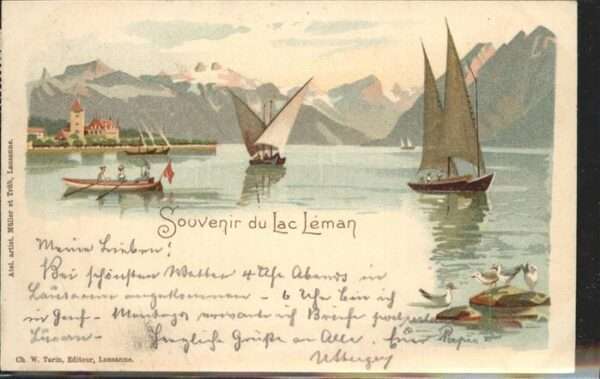 Souvenir du Lac Léman
Meine Lieben!
Bei schönstem Wetter 4 Uhr Abends in
Lausanne angekommen – 6 Uhr bin ich
in Genf – Montags erwarte ich Briefe
Luzern – Herzliche Grüße an Alle. Euer
Atel. artist. Müller et Trüb, Lausanne.
Ch. W. Tarin, Editeur, Lausanne.